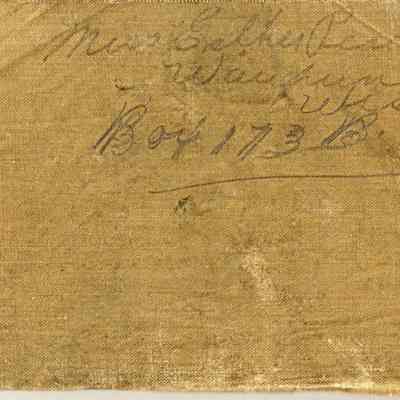 Miss Esther
Waupun
Wis
Box 173 B.